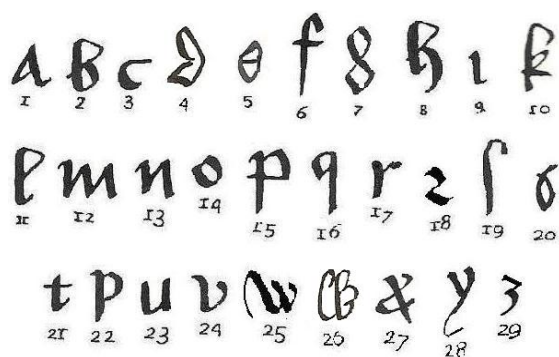 a b c d e f g h ı k
1 2 3 4 5 6 7 8 9 10
l m n o p q r ꝛ ſ s
11 12 13 14 15 16 17 18 19 20
t p u v w x y z
21 22 23 24 25 26 27 28 29